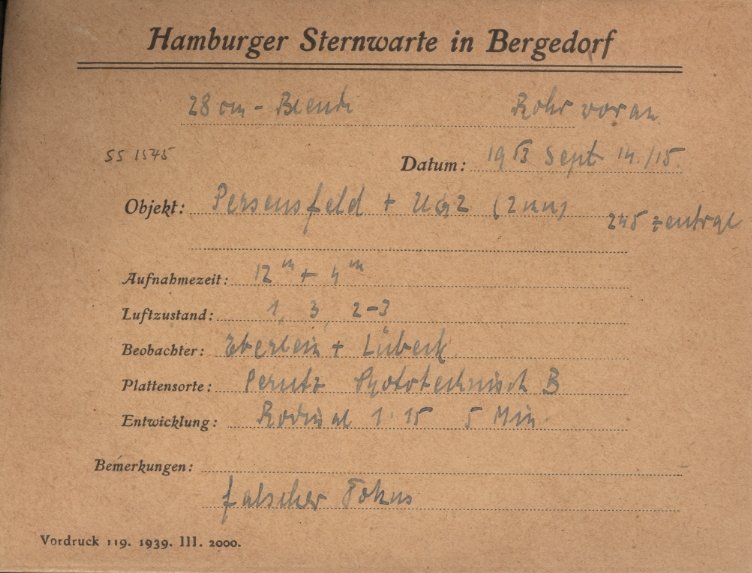 Hamburger Sternwarte in Bergedorf
28 cm - Blende Rohr voran
SS 1545
Datum: 1953 Sept 14./15.
Objekt: Perseusfeld +
245 zentral
Aufnahmezeit: 12ᵐ + 4ᵐ
Luftzustand: 1, 3, 2-3
Beobachter: Eberlein + Lübeck
Plattensorte: Perutz Phototechnisch B
Entwicklung: Rodinal 1:15 5 Min.
Bemerkungen:
falscher Fokus
Vordruck 119. 1939. III. 2000.